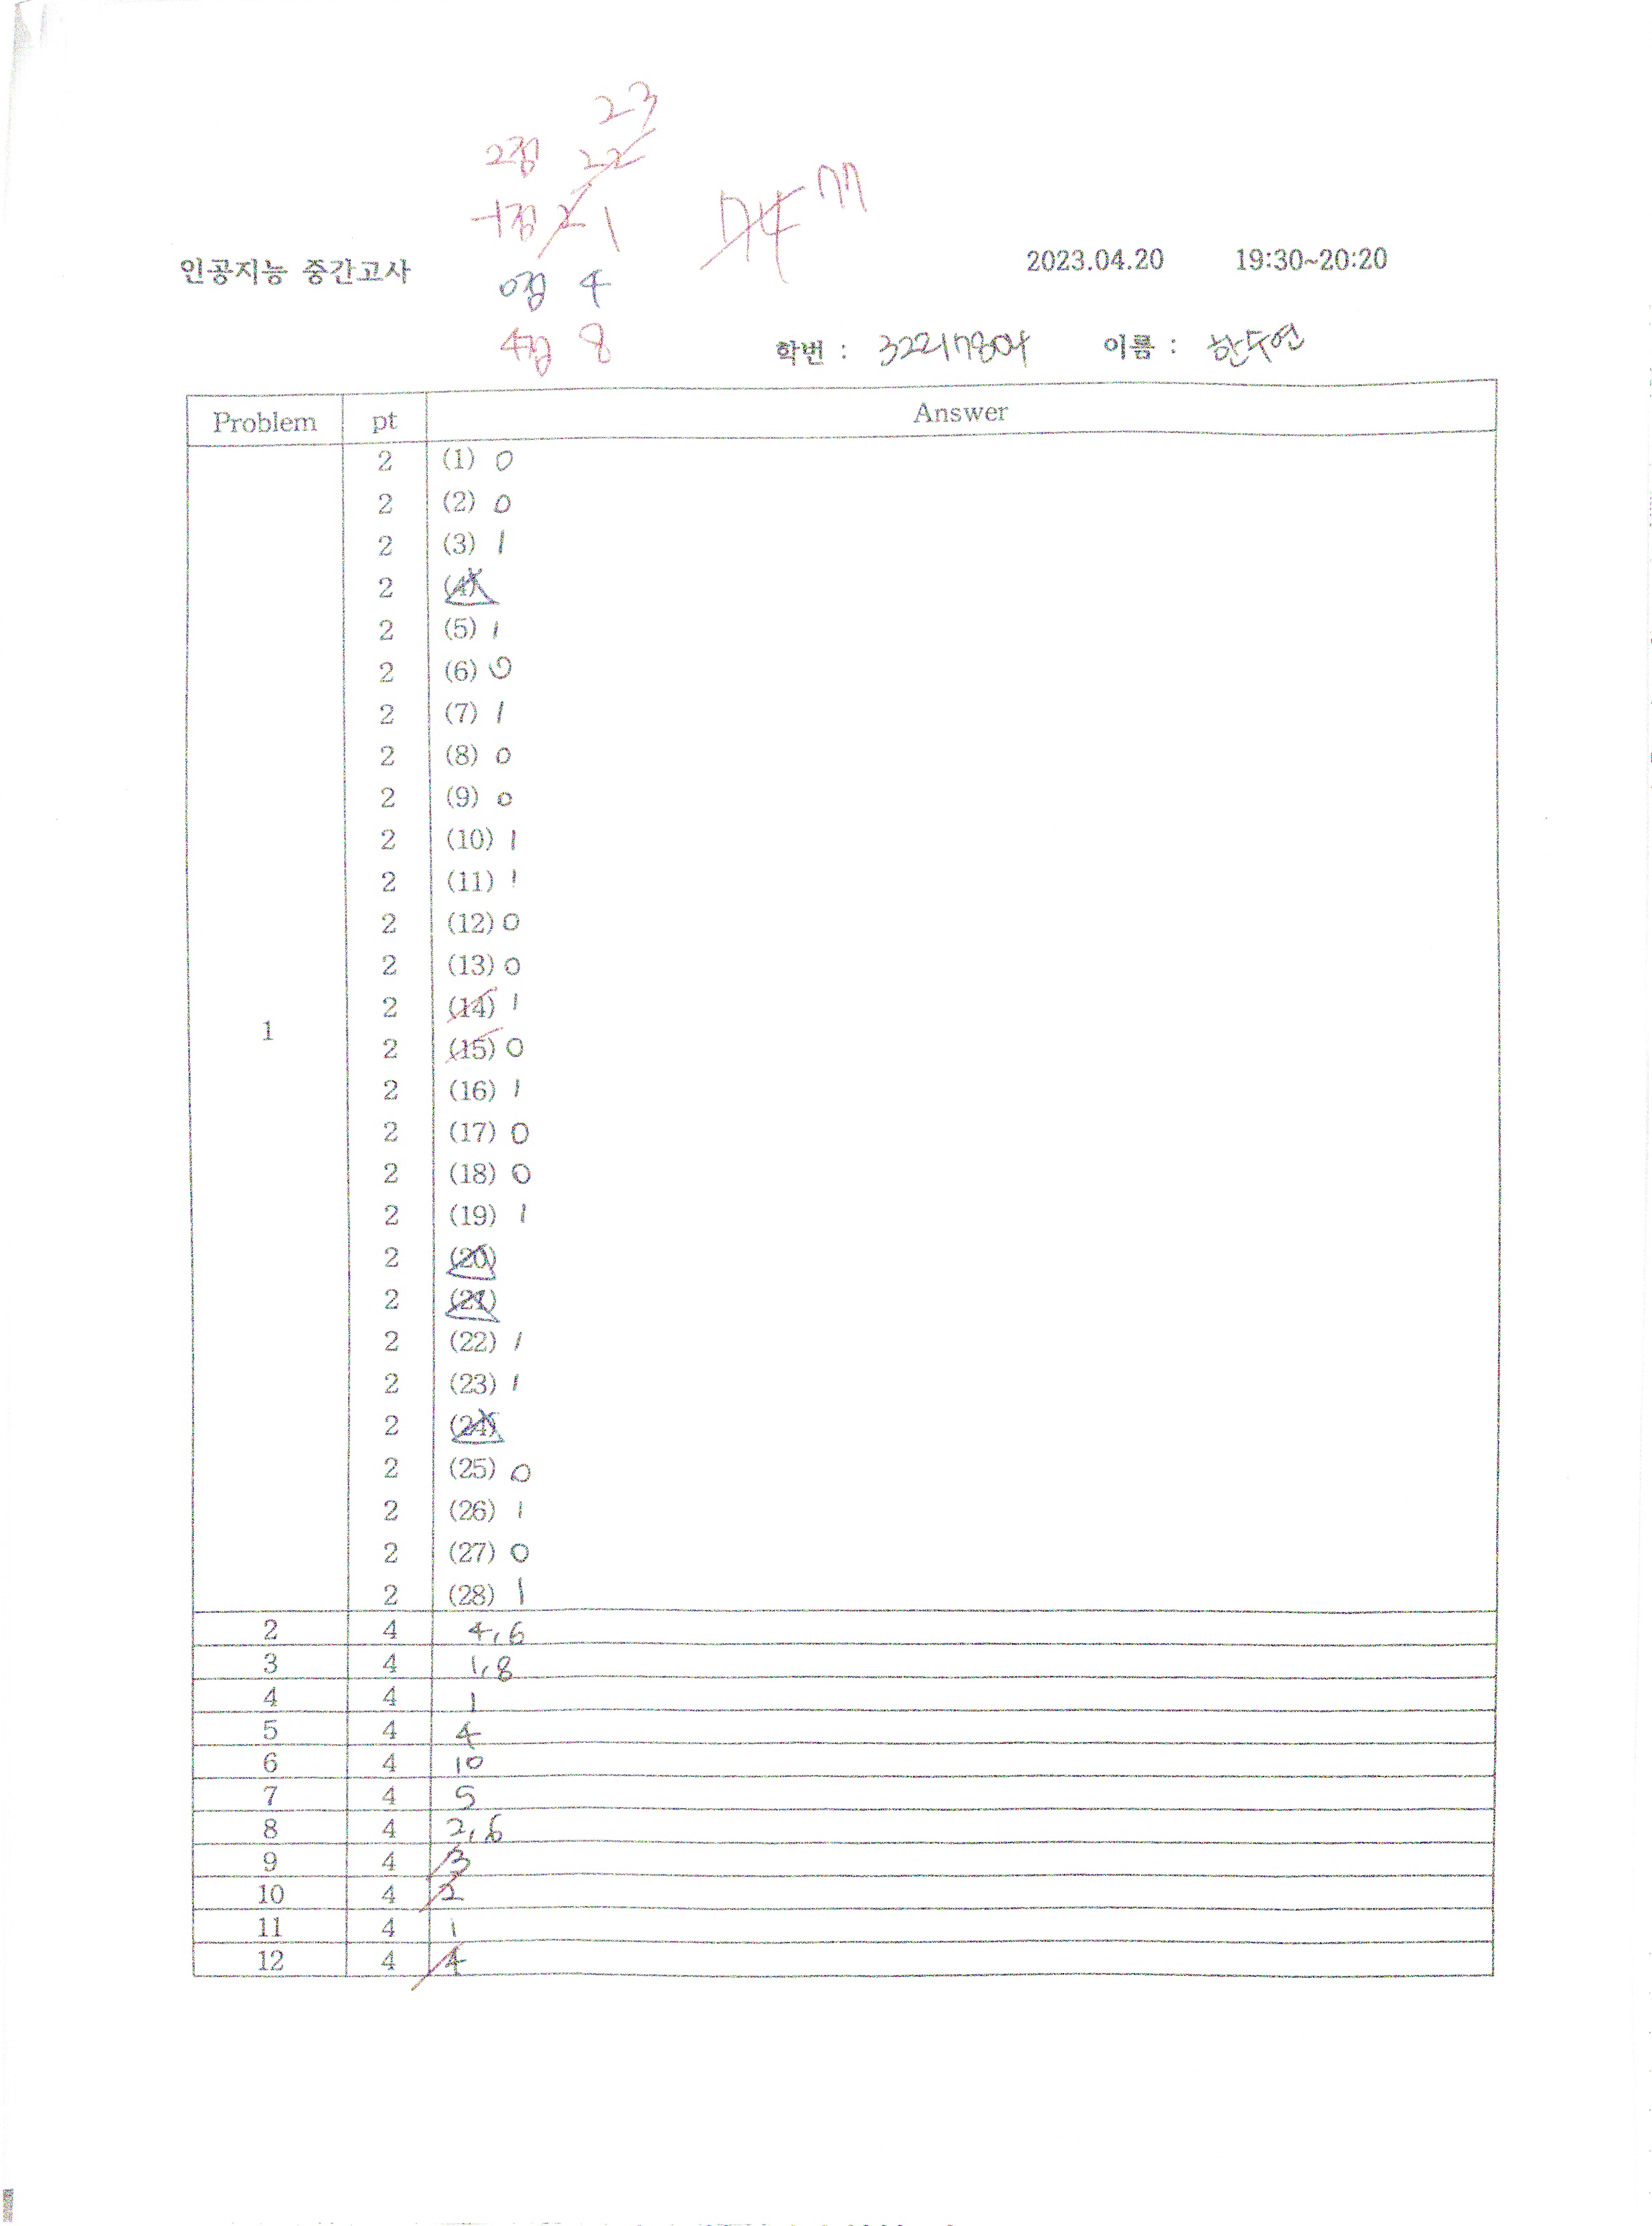 23
2점 22
-1점 2 1
74 77
인공지능 중간고사 2023.04.20 19:30~20:20
0점 4
4점 8
학번 : 32217804 이름 : 한수연
Problem pt Answer
2 (1) 0
2 (2) 0
2 (3) 1
2 (4)
2 (5) 1
2 (6) 0
2 (7) 1
2 (8) 0
2 (9) 0
2 (10) 1
2 (11) 1
2 (12) 0
2 (13) 0
2 (14) 1
1
2 (15) 0
2 (16) 1
2 (17) 0
2 (18) 0
2 (19) 1
2 (20)
2 (21)
2 (22) 1
2 (23) 1
2 (24)
2 (25) 0
2 (26) 1
2 (27) 0
2 (28) 1
2 4 4,6
3 4 1,8
4 4 1
5 4 4
6 4 10
7 4 5
8 4 2,6
9 4 3
10 4 2
11 4 1
12 4 4